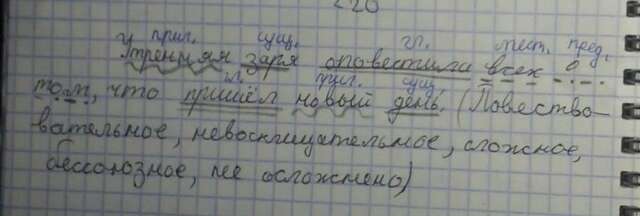 220
прил. сущ. гл. мест. пред.
Утренняя заря оповестила всех о
гл. прил. сущ.
том, что пришёл новый день. (Повество-
вательное, невосклицательное, сложное,
бессоюзное, не осложнено)